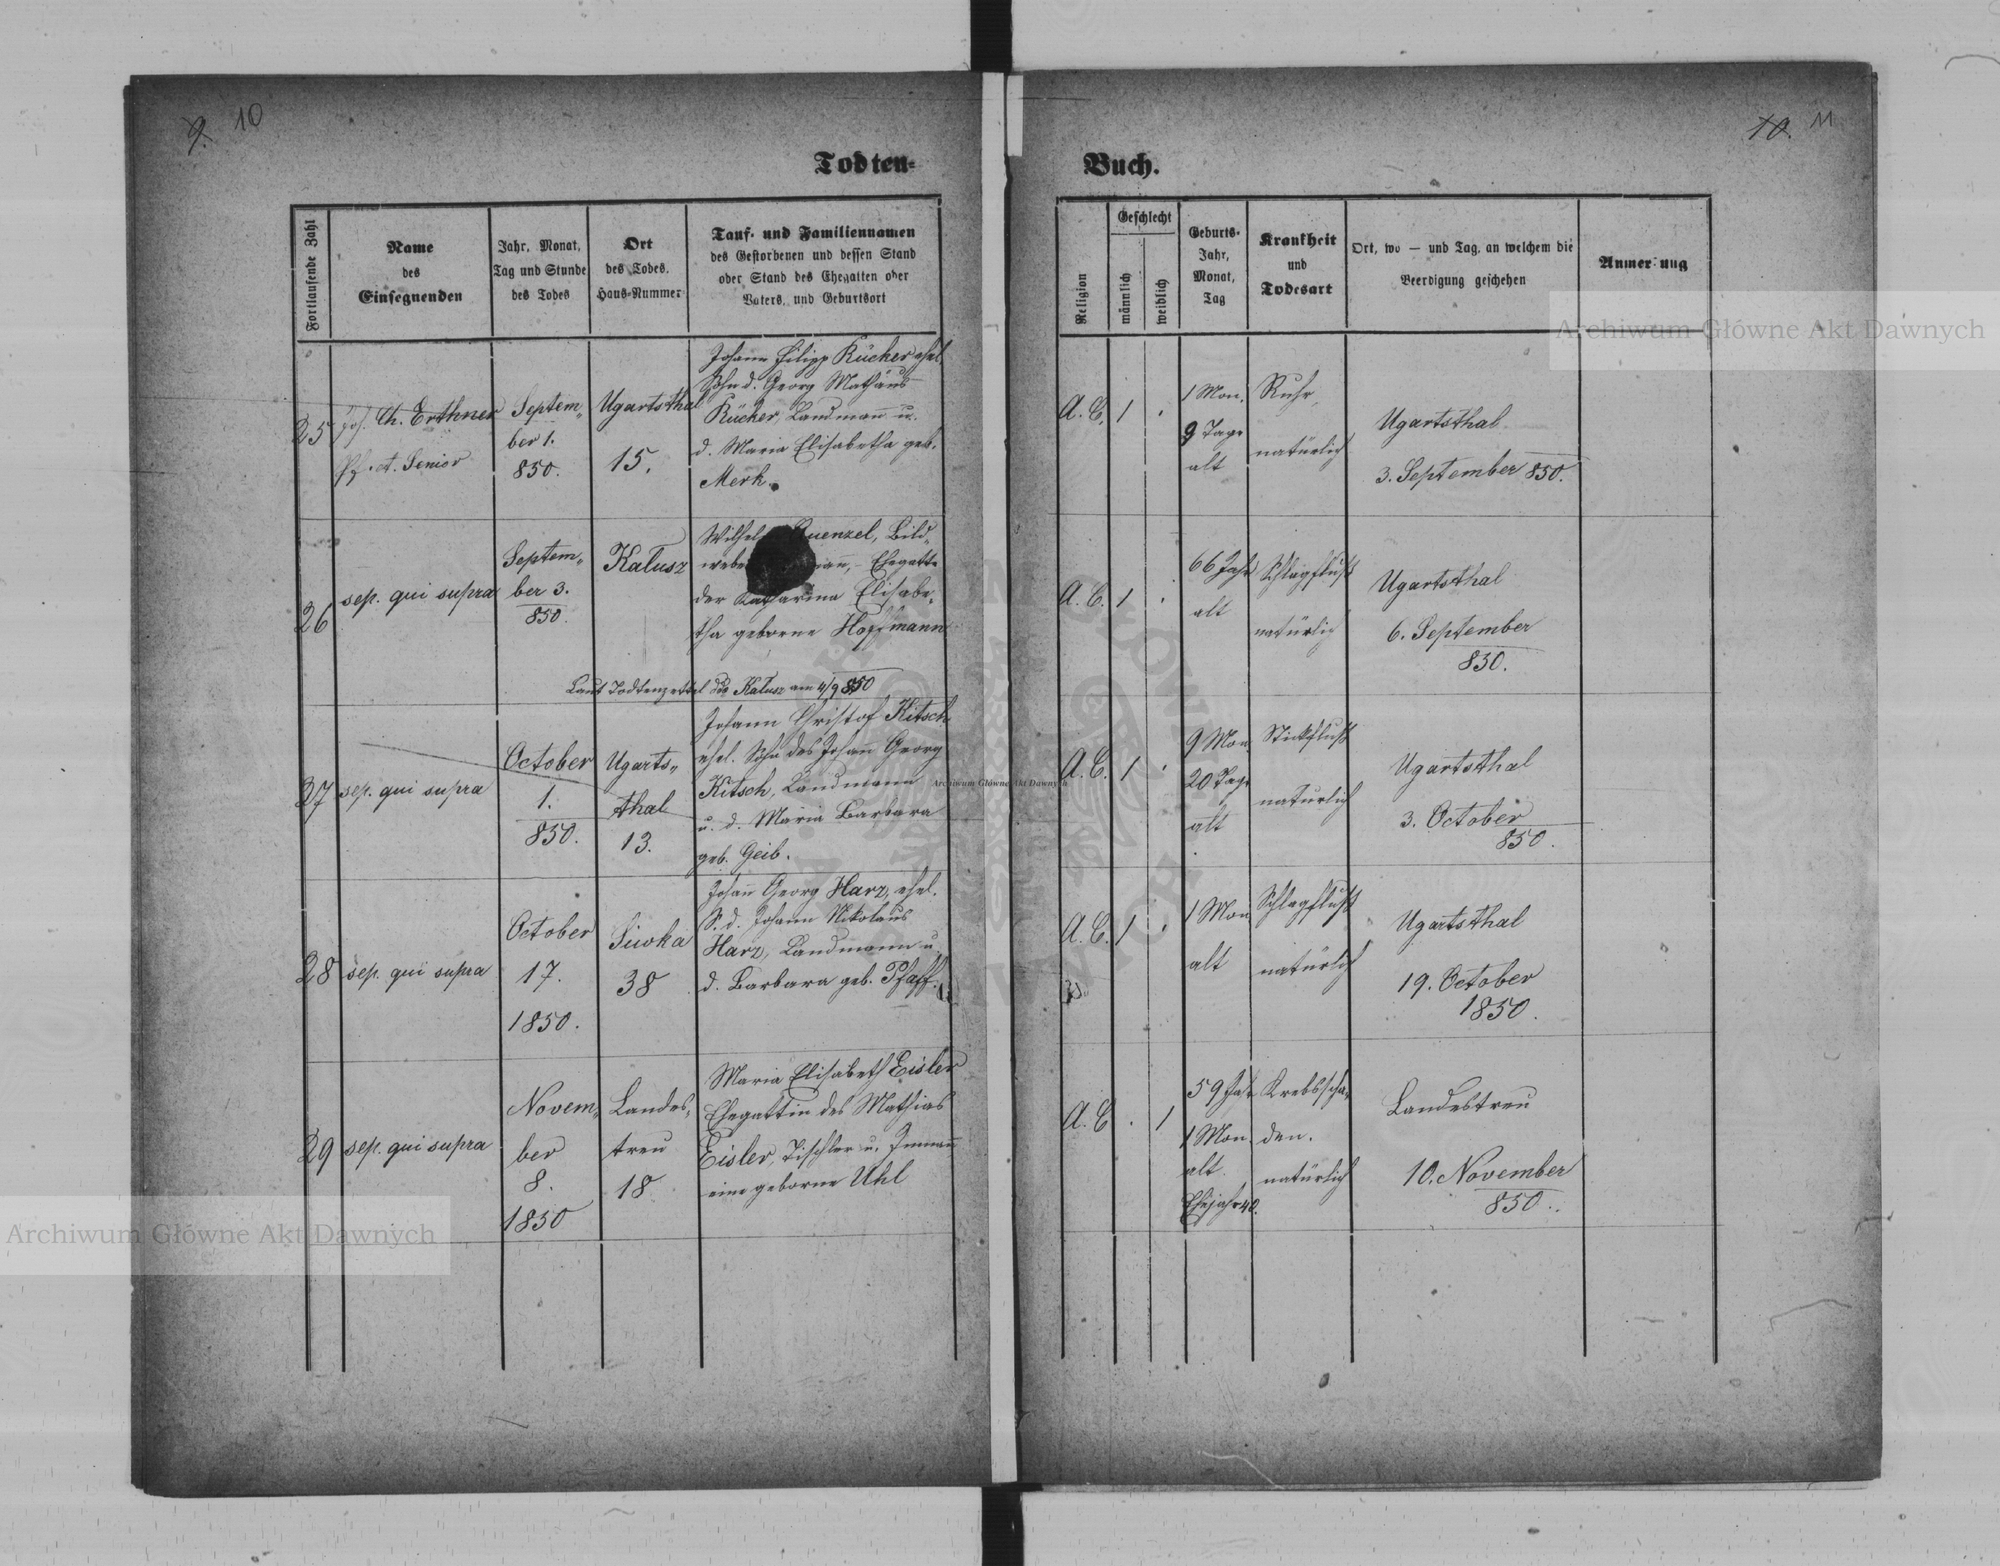 9. 10
Todten-
Fortlaufende Zahl
Name
des
Einsegnenden
Jahr, Monat,
Tag und Stunde
des Todes
Ort
des Todes,
Haus-Nummer
Tauf- und Familiennamen
des Gestorbenen und dessen Stand
oder Stand des Ehegatten oder
Vaters, und Geburtsort
25
Joh. Ch. Erthner
Pf. A. Senior
Septem„
ber 1.
850.
Ugartsthal
15.
Johann Filipp Kücker ehel.
Sohn d. Georg Mathäus
Kücker, Landmann u.
d. Maria Elisabetha geb.
Merk.
26
sep. qui supra
Septem„
ber 3.
850.
Kałusz
Quenzel, Bild„
Ehegatte
der Katharina Elisabe„
tha geborne Hoffmann
Laut Todtenzettel ddo Kałusz am 4/9 850
27
sep. qui supra
October
1.
850.
Ugarts„
thal
13.
Johann Christof Kitsch
ehel. Sohn des Johan̄ Georg
Kitsch, Landmann
u. d. Maria Barbara
geb. Geib.
28
sep. qui supra
October
17.
1850.
Siwka
38
Johan̄ Georg Harz, ehel.
S. d. Johann Nikolaus
Harz, Landmann u.
d. Barbara geb. Pfaff.
29
sep. qui supra
Novem„
ber
8.
1850
Landes„
treu
18
Maria Elisabeth Eisler
Ehegattin des Mathias
Eisler, Tischler u. Inman̄
eine geborne Uhl
10. 11
Buch.
Religion
Geschlecht
männlich
weiblich
Geburts-
Jahr,
Monat,
Tag
Krankheit
und
Todesart
Ort, wo — und Tag, an welchem die
Beerdigung geschehen
Anmer ung
A. C. 1 .
1 Mon.
9 Tage
alt
Ruhr,
natürlich
Ugartsthal
3. September 850.
A. C. 1 .
66 Jahr
alt
Schlagfluß
natürlich
Ugartsthal
6. September
850.
A. C. 1 .
9 Mon.
20 Tage
alt
Stickfluß
natürlich
Ugartsthal
3. October
850.
A. C. 1 .
1 Mon
alt
Schlagfluß
natürlich
Ugartsthal
19. October
1850.
A. C . 1
59 Jahr
1 Mon.
alt.
Ehejahr 40.
Krebsscha„
den.
natürlich
Landestreu
10. November
850.
Archiwum Główne Akt Dawnych
Archiwum Główne Akt Dawnych
Archiwum Główne Akt Dawnych